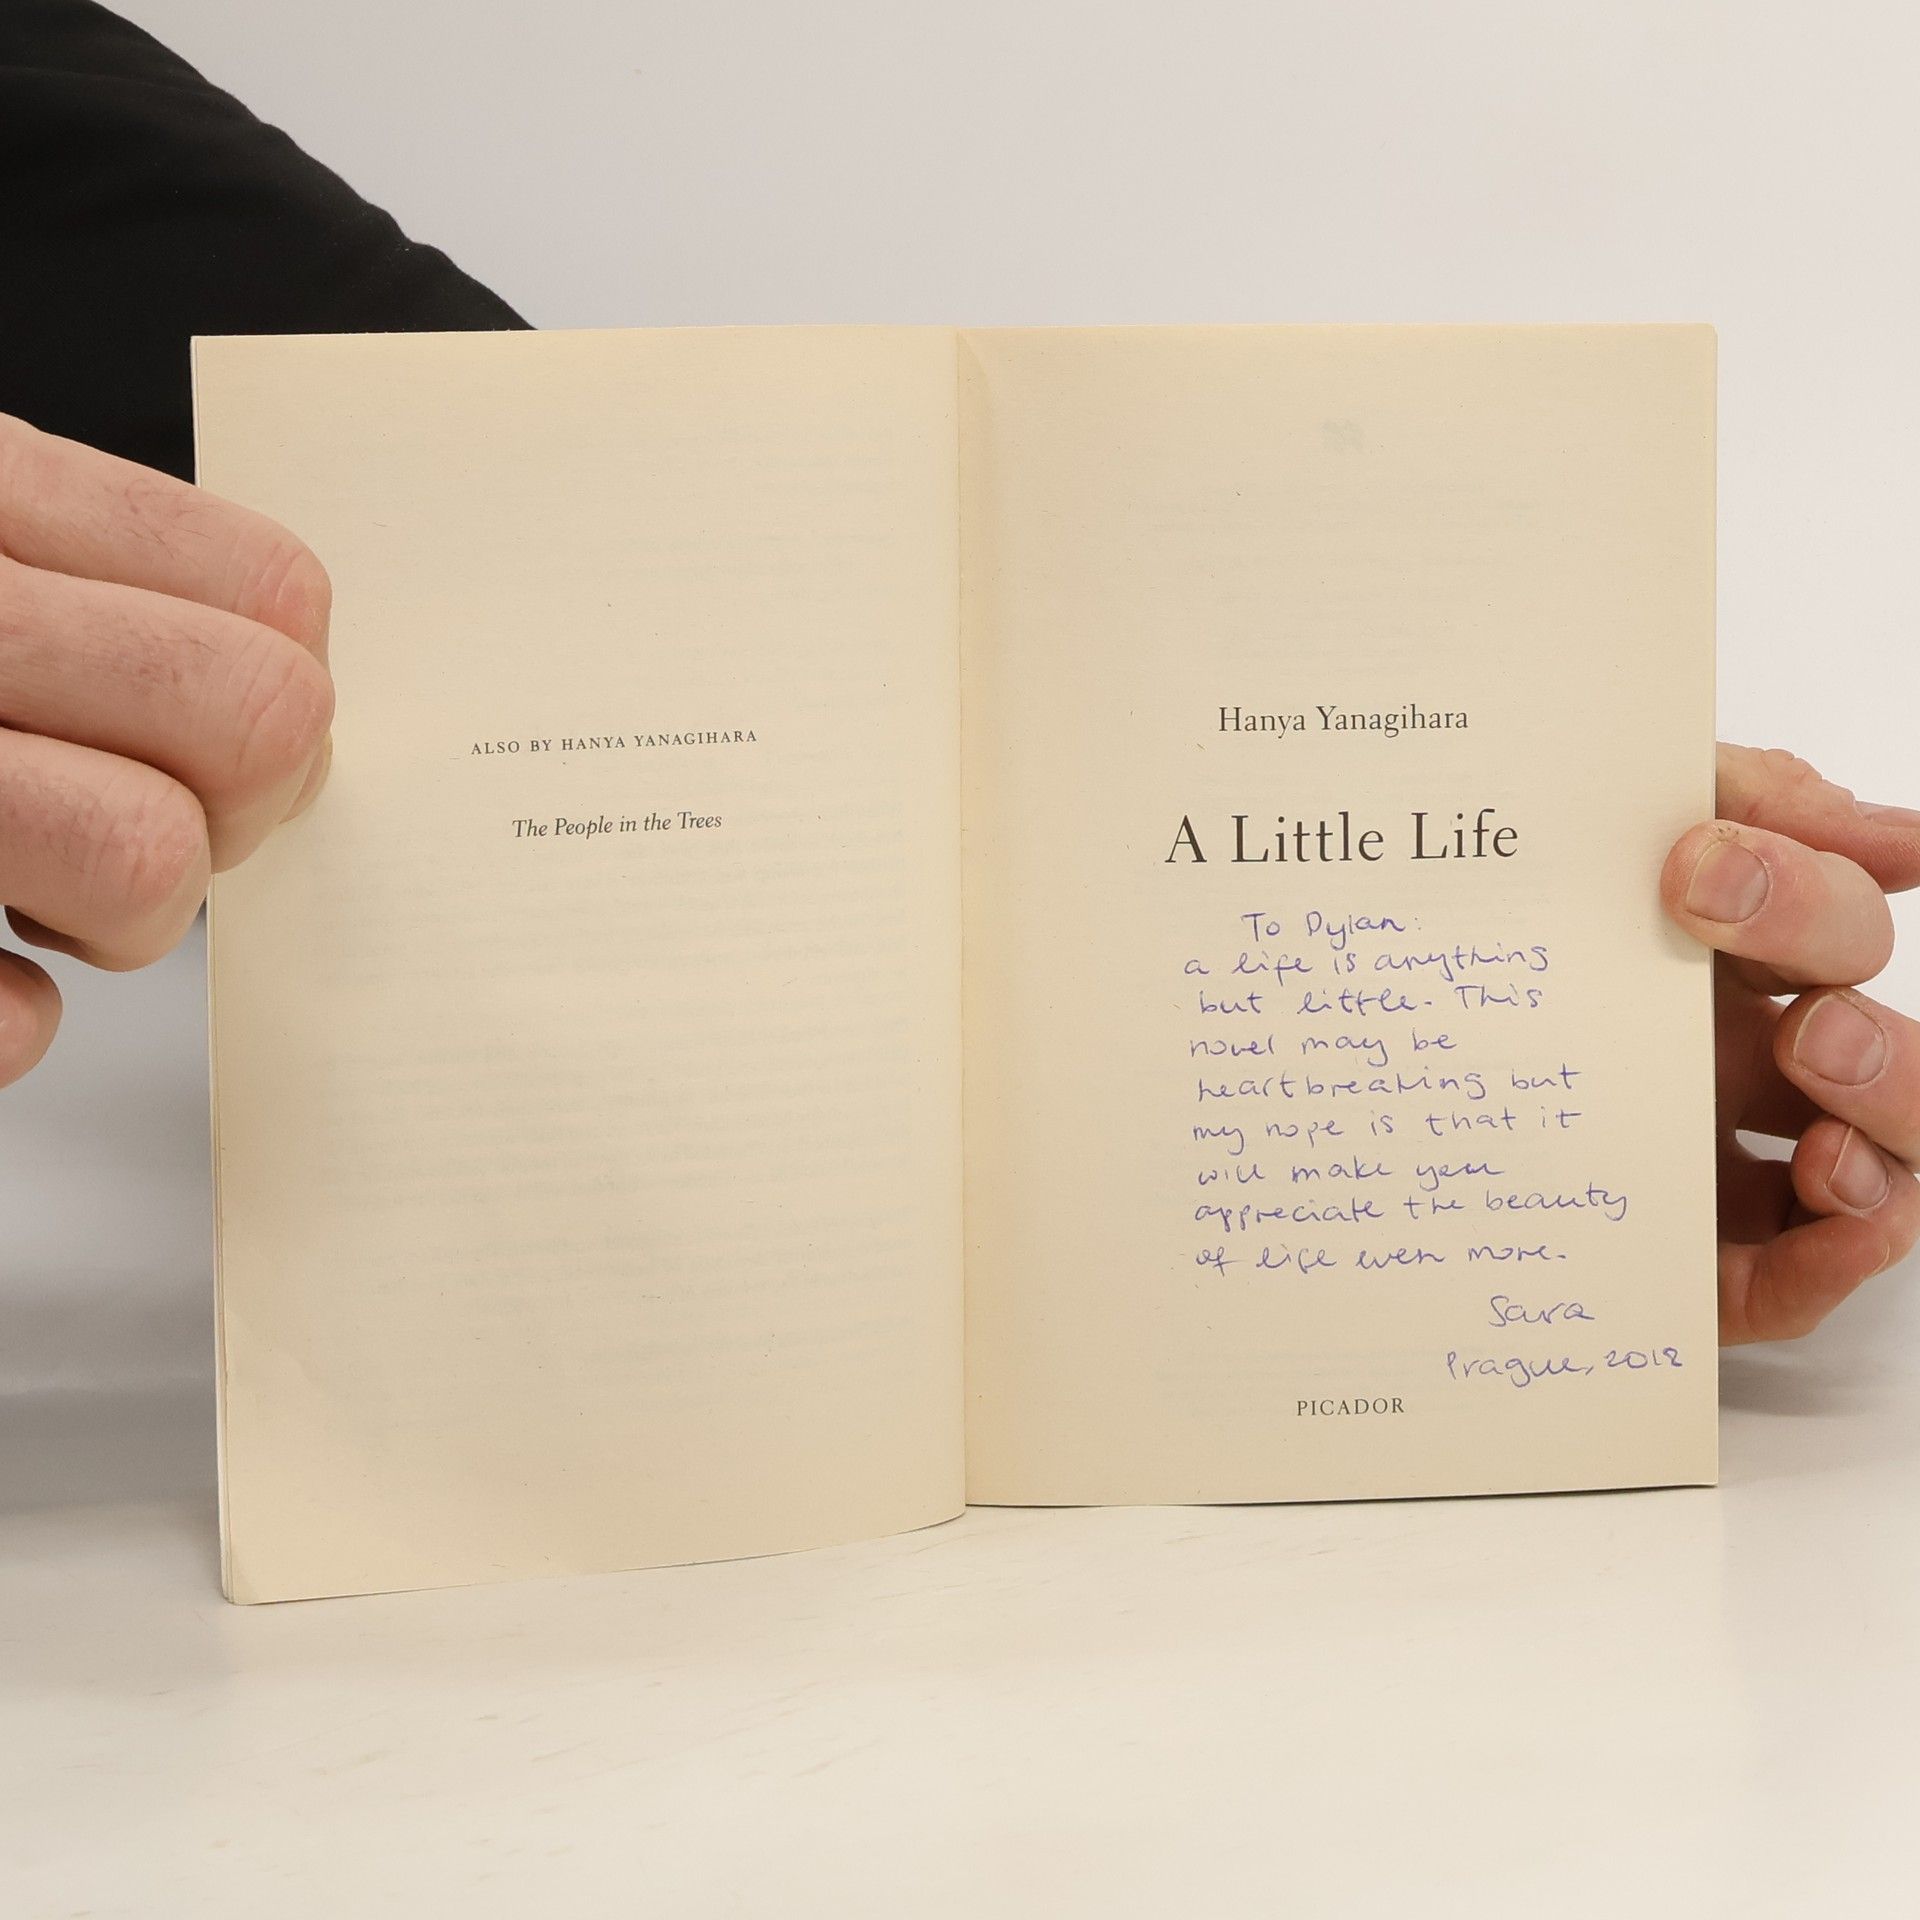 ALSO BY HANYA YANAGIHARA
The People in the Trees
Hanya Yanagihara
A Little Life
To Dylan:
a life is anything
but little. This
novel may be
heartbreaking but
my hope is that it
will make you
appreciate the beauty
of life even more.
Sara
Prague, 2018
PICADOR